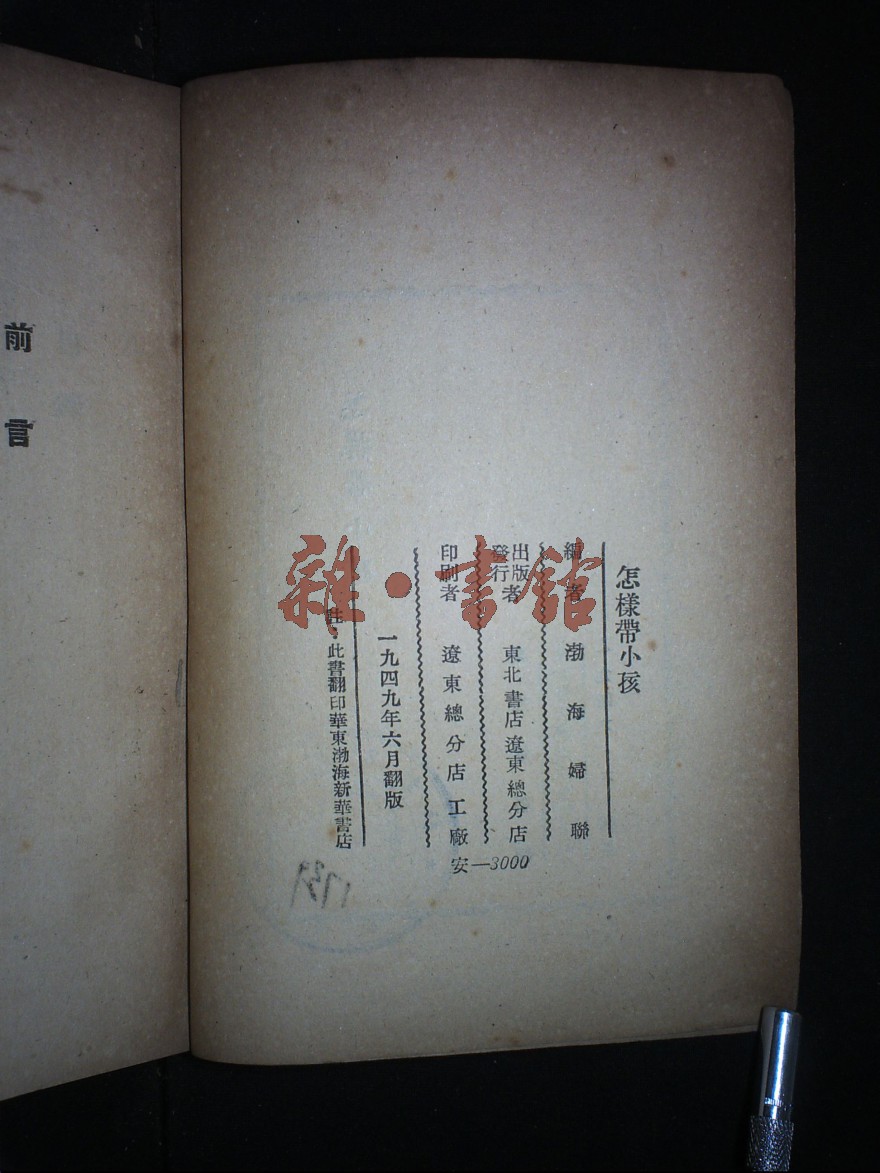 怎樣帶小孩
編者 渤海婦聯
出版
發行者 東北書店遼東總分店
印刷者 遼東總分店工廠
安—3000
一九四九年六月翻版
註·此書翻印華東渤海新華書店
雜·書館
前言